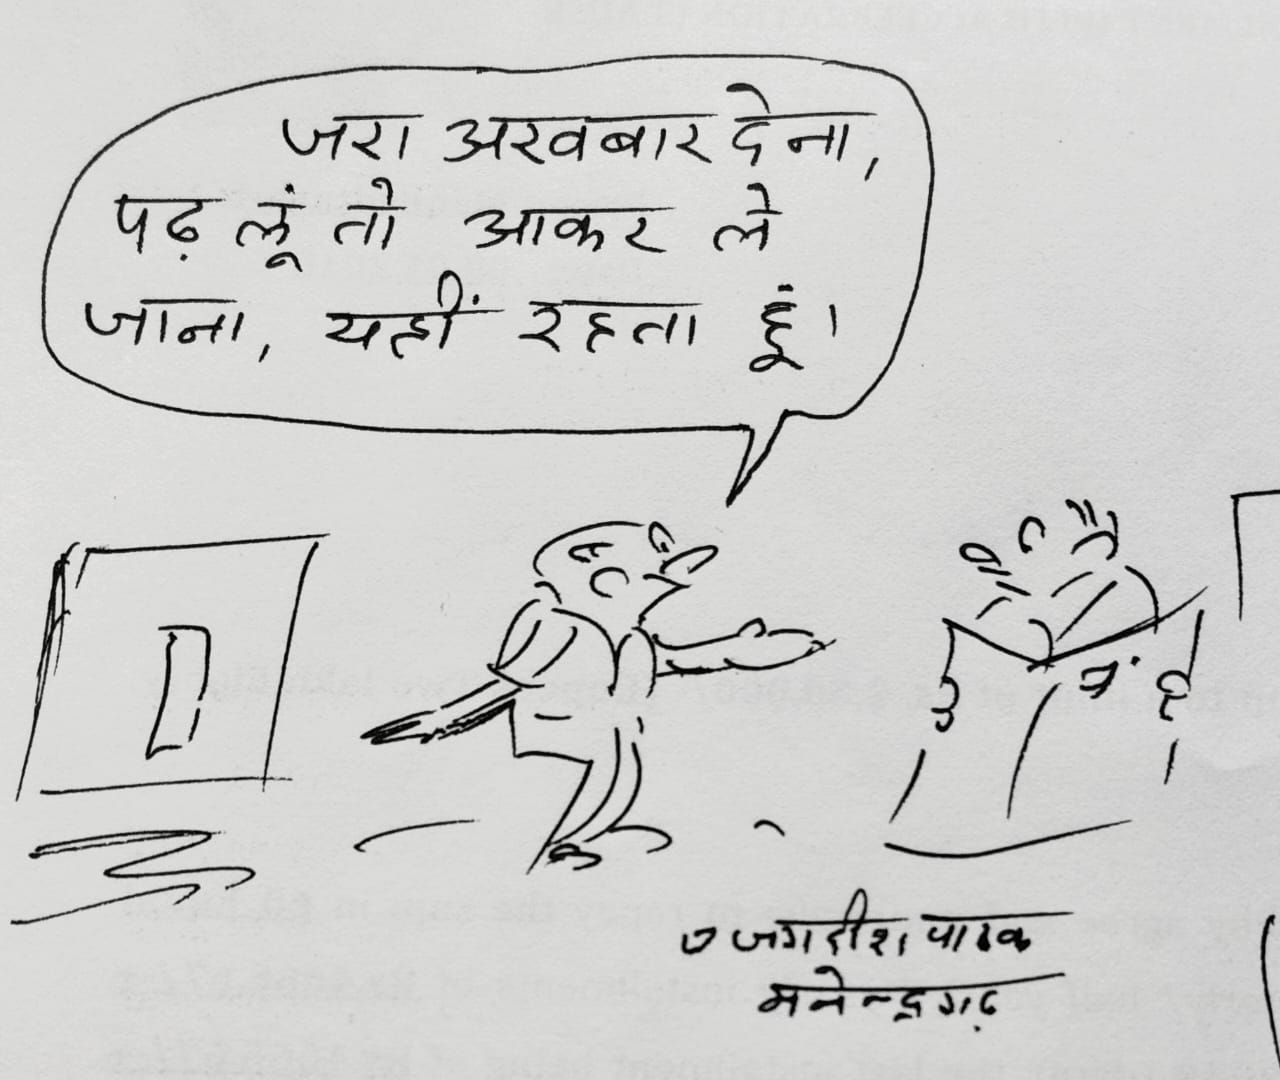 जरा अखबार देना,
पढ़ लूं तो आकर ले
जाना, यहीं रहता हूं।
जगदीश पाठक
मनेन्द्रगढ़